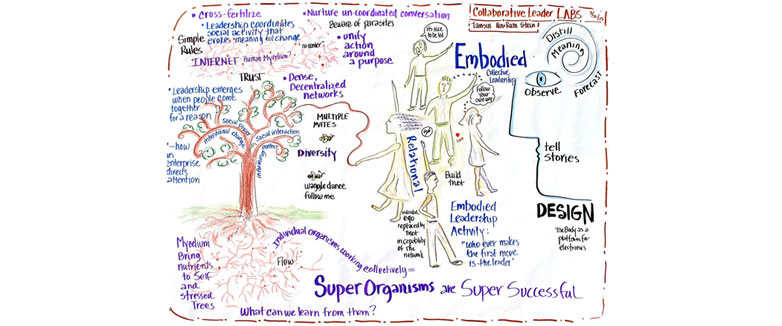 • cross-fertilize
• Leadership coordinates
social activity that
evokes meaning to change
Simple
Rules
INTERNET Human Mycelium?
no center
TRUST
• Nurture un-coordinated conversation
Beware of parasites
• unify
action
around
a purpose
• Dense,
Decentralized
networks
• Leadership emerges
when people come
together
for a reason
•--how
an
enterprise
directs
attention
intentional change
social
social interaction
culture
MULTIPLE
MATES
Diversity
waggle dance
follow me
Mycelium
Bring
nutrients
to Self
and
stressed
Trees
Flow
Individual organisms working collectively =
Super Organisms are Super Successful
What can we learn from them?
Embodied
Collective
Leadership
Follow
Your
own way
Relational
ego
Build
trust
ego
replaced by
trust
in capability of
the network
Embodied
Leadership
Activity:
"who ever makes
the first move
is the leader"
Collaborative Leader LABS
Distill
Meaning
Forecast
OBSERVE
tell
stories
DESIGN
The Body as a
platform for
electronics